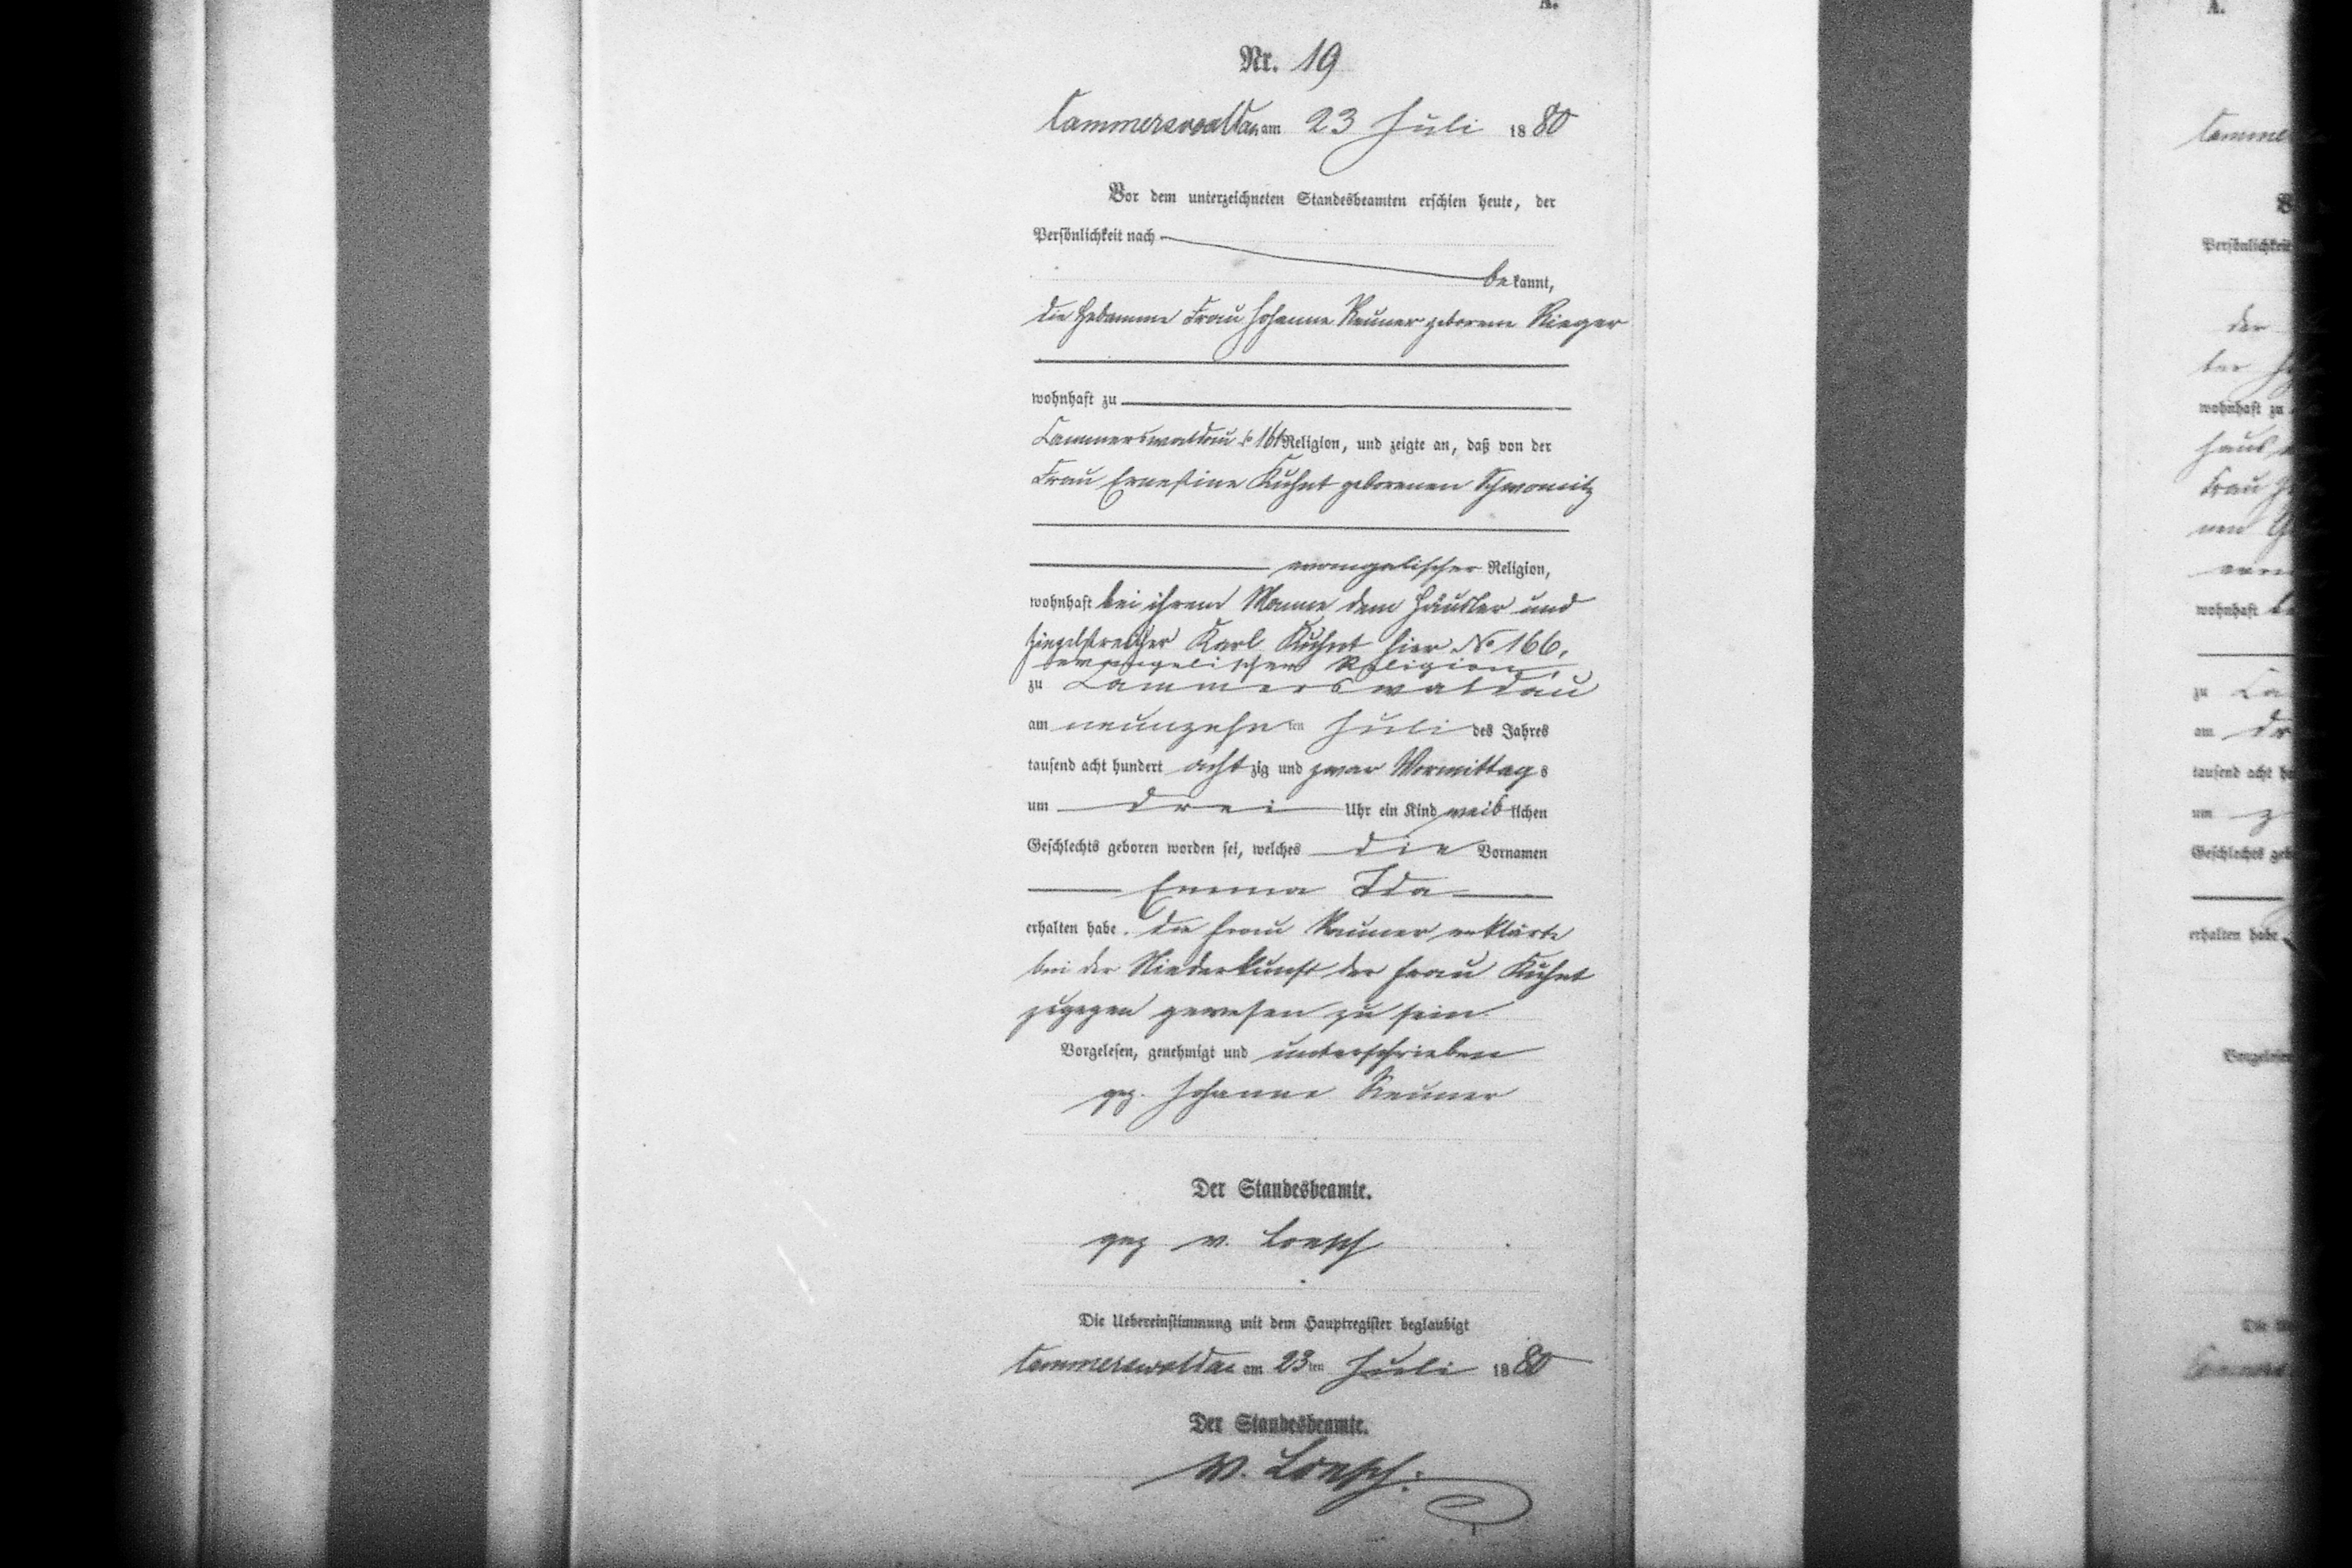 A.
Nr. 19
Cammerswaldau am 23 Juli 1880
Vor dem unterzeichneten Standesbeamten erschien heute, der
Persönlichkeit nach
bekannt,
die Hebamme Frau Johanne Reuner geborene Rieger
wohnhaft zu
Cammerswaldau Religion, und zeigte an, daß von der
Frau Ernestine Kuhnt geborenen
evangelischer Religion,
wohnhaft bei ihrem Manne dem Häusler und
Ziegelstreicher Karl Kuhnt hier No 166,
evangelischer Religion,
zu Cammerswaldau
am neunzehnten Juli des Jahres
tausend acht hundert achtzig und zwar Vormittags
um drei Uhr ein Kind weiblichen
Geschlechts geboren worden sei, welches die Vornamen
Emma Ida
erhalten habe. Die Frau Reuner erklärte
bei der Niederkunft der Frau Kuhnt
zugegen gewesen zu sein
Vorgelesen, genehmigt und unterschrieben
gez. Johanne Reuner
Der Standesbeamte.
gez v. Loesch
Die Uebereinstimmung mit dem Hauptregister beglaubigt
Cammerswaldau am 23ten Juli 1880
Der Standesbeamte.
v. Loesch.
A.
Persönlichkeit
der
wohnhaft zu
Frau
wohnhaft
zu
am
tausend acht
um
Geschlechts
erhalten habe